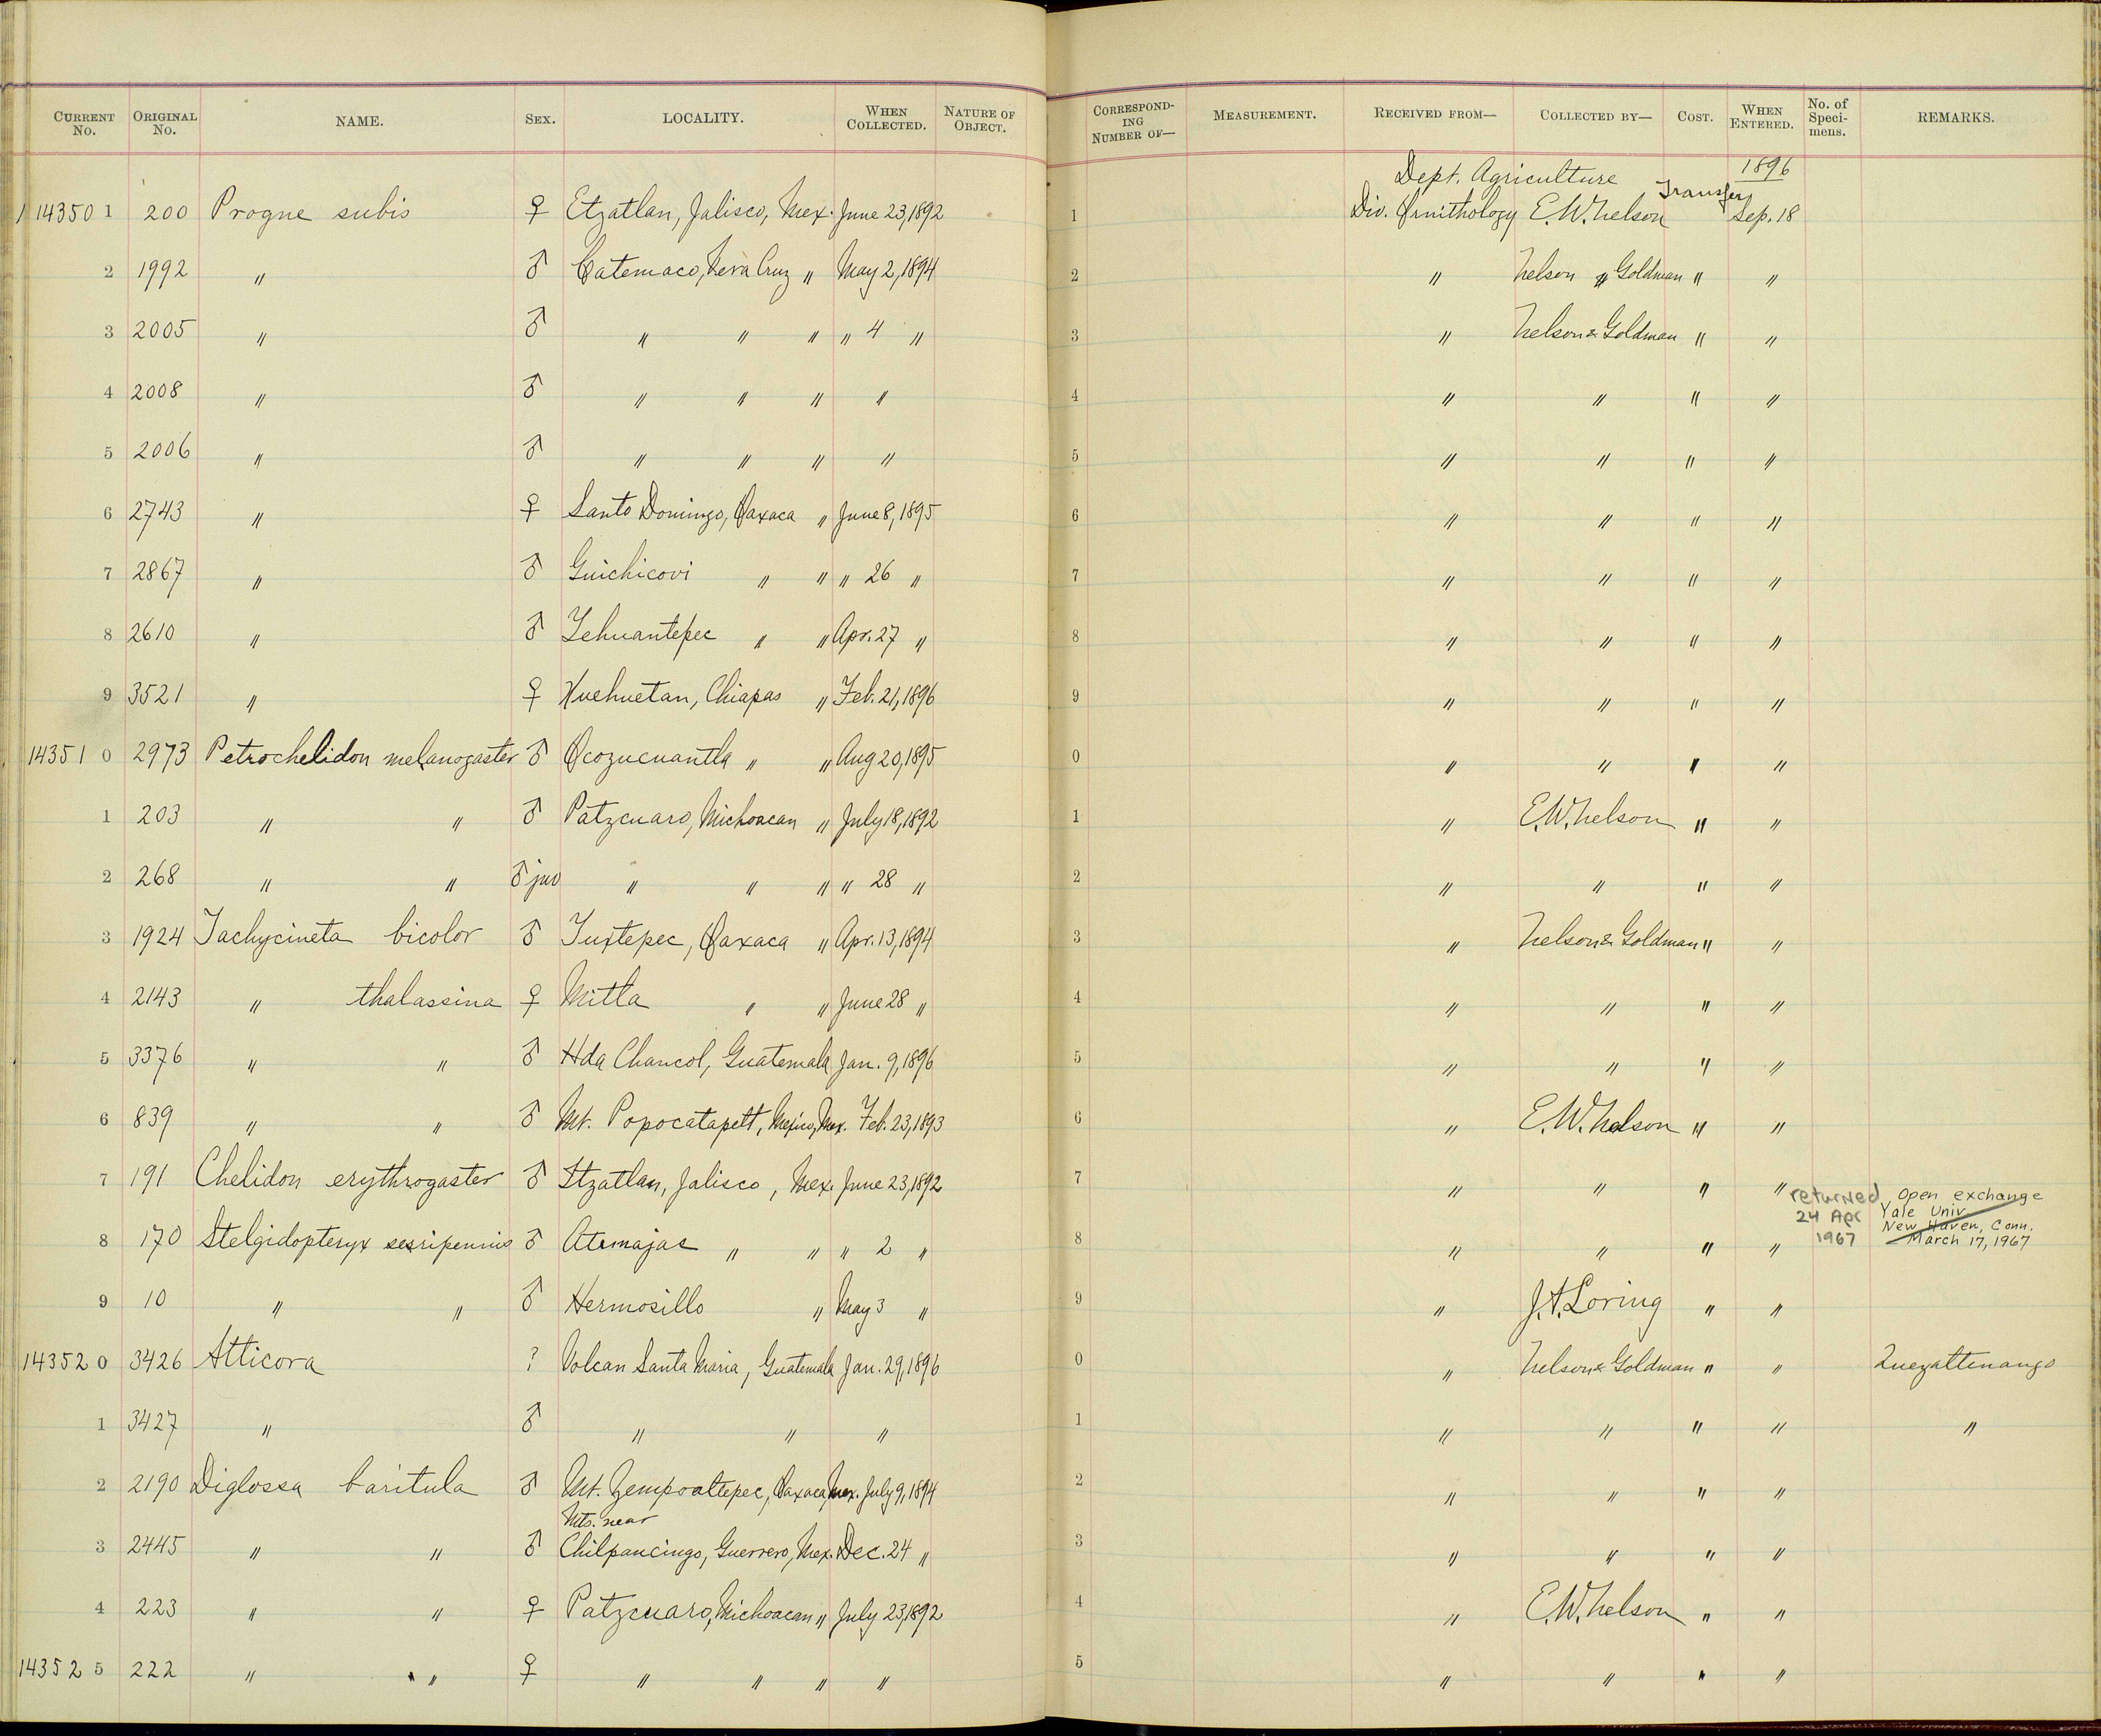 CURRENT No. ORIGINAL No. NAME. SEX. LOCALITY. WHEN COLLECTED. NATURE OF OBJECT. CORRESPONDING NUMBER OF— MEASUREMENT. RECEIVED FROM— COLLECTED BY— COST. WHEN ENTERED. No. of Specimens. REMARKS.
Dept. Agriculture 1896
143501 200 Progne subis ♀ Etzatlan, Jalisco, Mex. June 23, 1892 1 Div. Ornithology E.W. Nelson Transfer Sep. 18
2 1992 " ♂ Catemaco, Vera Cruz " May 2, 1894 2 " Nelson & Goldman " "
3 2005 " ♂ " " " " 4 " 3 " Nelson & Goldman " "
4 2008 " ♂ " " " " 4 " " " "
5 2006 " ♂ " " " " 5 " " " "
6 2743 " ♀ Santo Domingo, Oaxaca " June 8, 1895 6 " " " "
7 2867 " ♂ Guichicovi " " " 26 " 7 " " " "
8 2610 " ♂ Tehuantepec " " Apr. 27 " 8 " " " "
9 3521 " ♀ Huehuetan, Chiapas " Feb. 21, 1896 9 " " " "
143510 2973 Petrochelidon melanogaster ♂ Ocozucuantla " " Aug 20, 1895 0 " " " "
1 203 " " ♂ Patzcuaro, Michoacan " July 18, 1892 1 " E.W. Nelson " "
2 268 " " ♂ juv " " " " 28 " 2 " " " "
3 1924 Tachycineta bicolor ♂ Tuxtepec, Oaxaca " Apr. 13, 1894 3 " Nelson & Goldman " "
4 2143 " thalassina ♀ Mitla " " June 28 " 4 " " " "
5 3376 " " ♂ Hda Chancol, Guatemala Jan. 9, 1896 5 " " " "
6 839 " " ♂ Mt. Popocatapetl, Mexico, Mex. Feb. 23, 1893 6 " E.W. Nelson " "
7 191 Chelidon erythrogaster ♂ Etzatlan, Jalisco, Mex. June 23, 1892 7 " " " "
returned 24 Apr 1967
Open exchange
Yale Univ
New Haven, Conn.
March 17, 1967
8 170 Stelgidopteryx serripennis ♂ Atemajac " " " 2 " 8 " " " "
9 10 " " ♂ Hermosillo " May 3 " 9 " J.A. Loring " "
143520 3426 Atticora ? Volcan Santa Maria, Guatemala Jan. 29, 1896 0 " Nelson & Goldman " " Quezaltenango
1 3427 " ♂ " " " 1 " " " " "
2 2190 Diglossa baritula ♂ Mt. Zempoaltepec, Oaxaca, Mex. July 9, 1894 2 " " " "
Mts. near
3 2445 " " ♂ Chilpancingo, Guerrero, Mex. Dec. 24 " 3 " " " "
4 223 " " ♀ Patzcuaro, Michoacan " July 23, 1892 4 " E.W. Nelson " "
143525 222 " " ♀ " " " " 5 " " " "